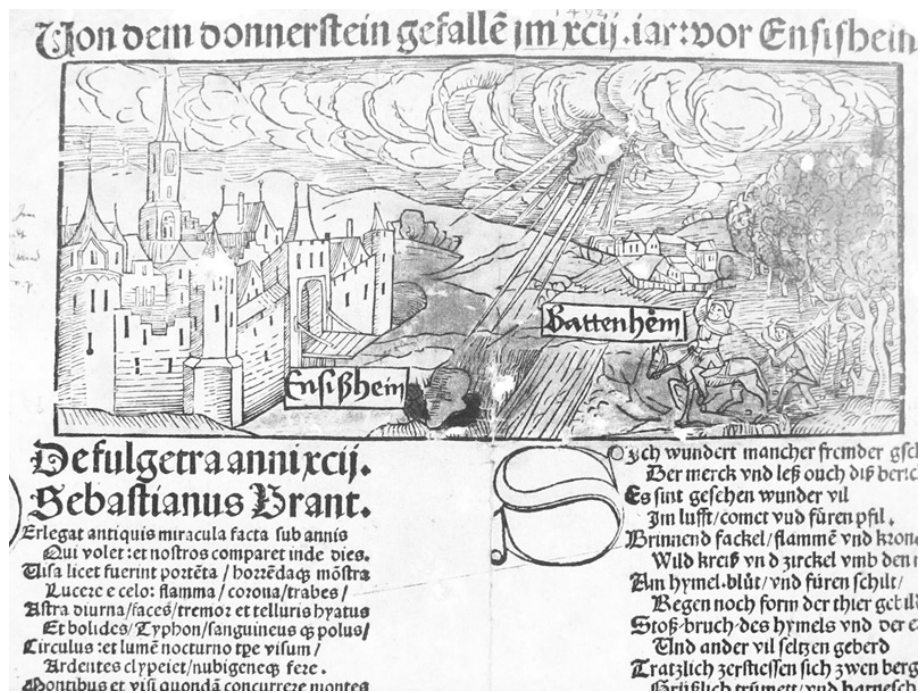 1492
Von dem donnerstein gefallẽ jm xcij. iar: vor Ensisheim
Battenhem̃
Ensißheim
De fulgetra anni xcij.
Sebastianus Brant.
Erlegat antiquis miracula facta sub annis
Qui volet: et nostros comparet inde dies.
Uisa licet fuerint portẽta / horrẽdaqꝫ mõstra
Lucere e celo: flamma / corona / trabes /
Astra diurna / faces / tremor et telluris hyatus
Et bolides / Typhon / sanguineus qꝫ polus /
Circulus: et lumẽ nocturno tꝑe visum /
Ardentes clypei et / nubigeneqꝫ fere.
Montibus et visi quondã concurrere montes
Sych wundert mancher fremder gsch
Der merck vnd leß ouch diß beric
Es sint gesehen wunder vil
Im lufft / comet vnd füren pfil.
Brinnend fackel / flammẽ vnd kron
Wild kreiß vnd zirckel vmb den
Am hymel. blůt / vnd füren schilt /
Regen noch form der thier gebild
Stoß-bruch des hymels vnd der e
Vnd ander vil seltzen geberd
Tratzlich zerstiessen sich zwen berg
Grüßlich trümett / vnd harnesch